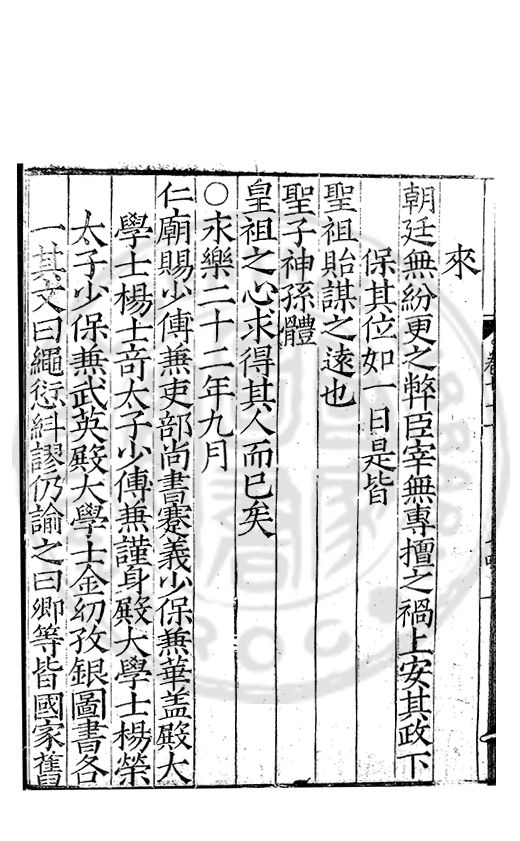 來
朝廷無紛更之弊臣宰無專擅之禍上安其政下
保其位如一日是皆
聖祖貽謀之遠也
聖子神孫體
皇祖之心求得其人而已矣
○永樂二十二年九月
仁廟賜少傅兼吏部尚書蹇義少保兼華盖殿大
學士楊士竒太子少傅兼謹身殿大學士楊榮
太子少保兼武英殿大學士金幼孜銀圖書各
一其文曰繩愆糾謬仍諭之曰卿等皆國家舊